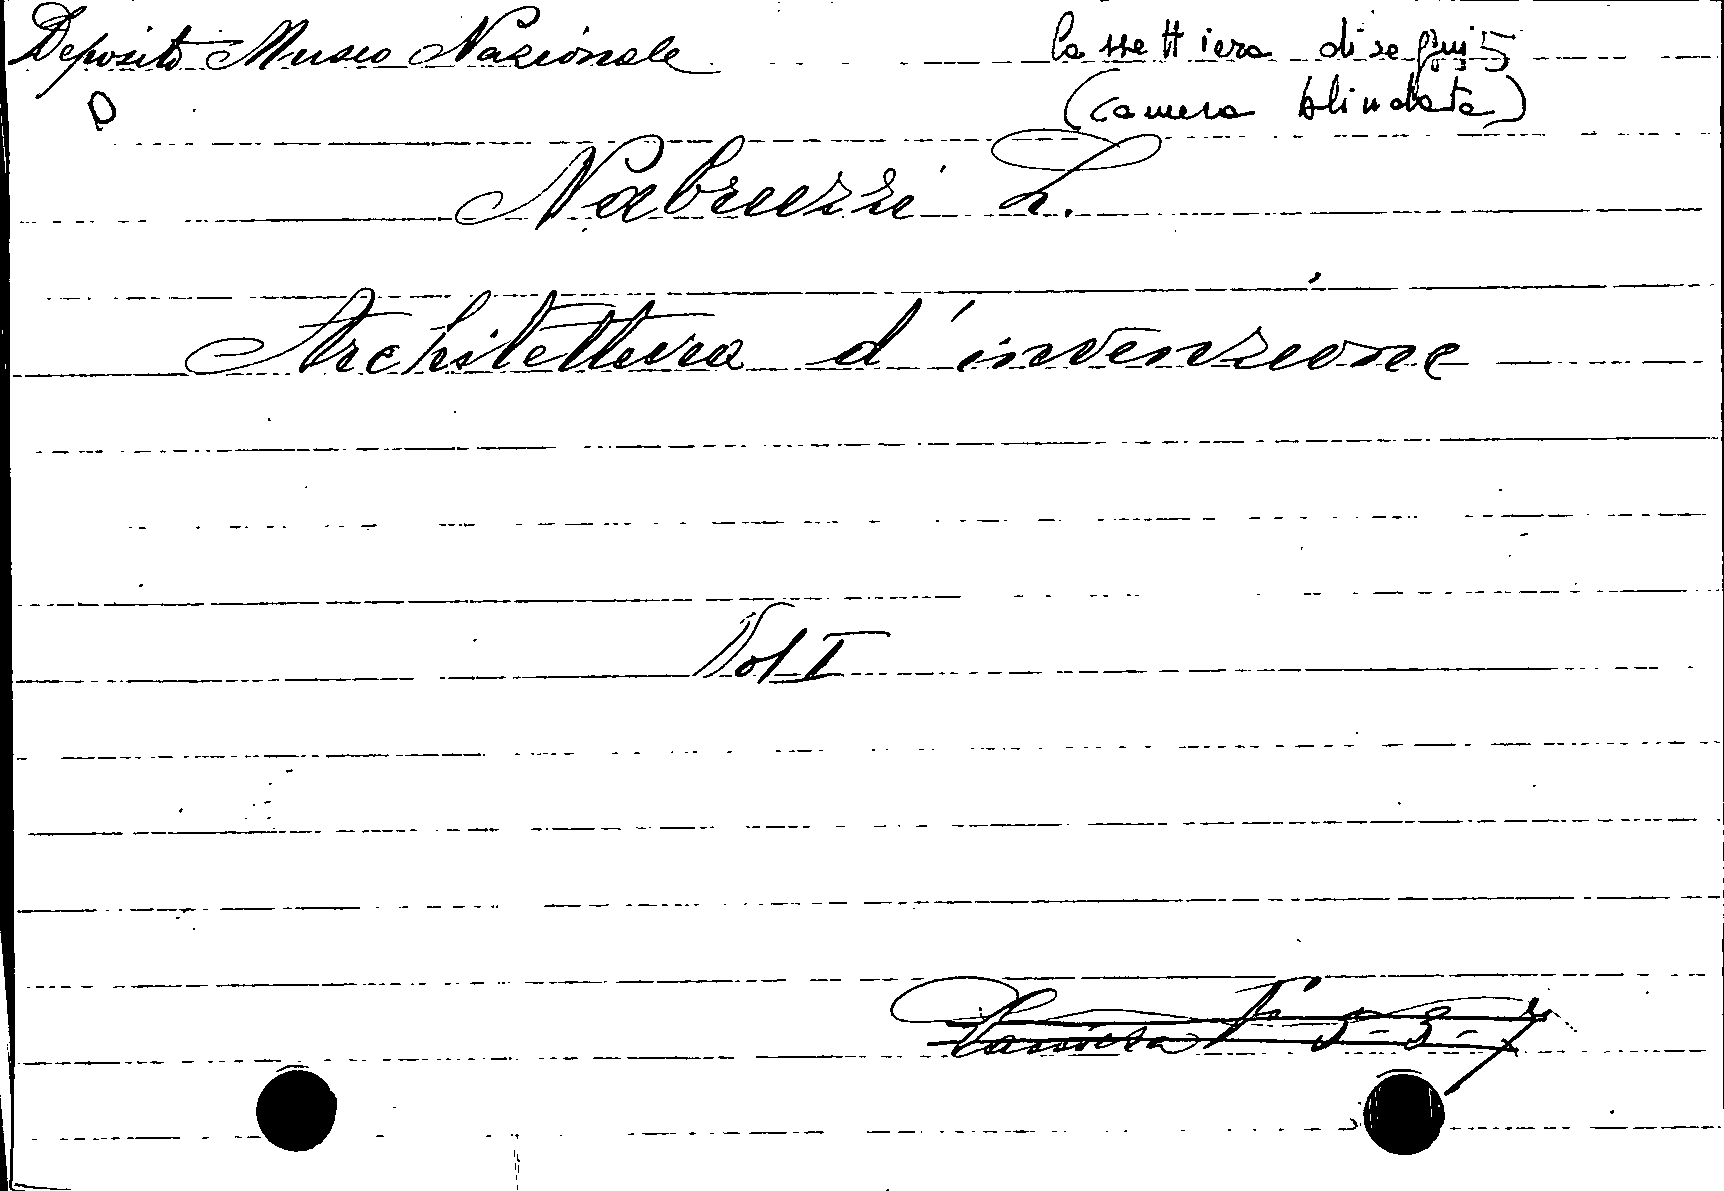 Deposito Museo Nazionale
Cassettiera disegni 5
D
(camera blindata)
Nabruzzi L.
Architettura d'invenzione
Vol I